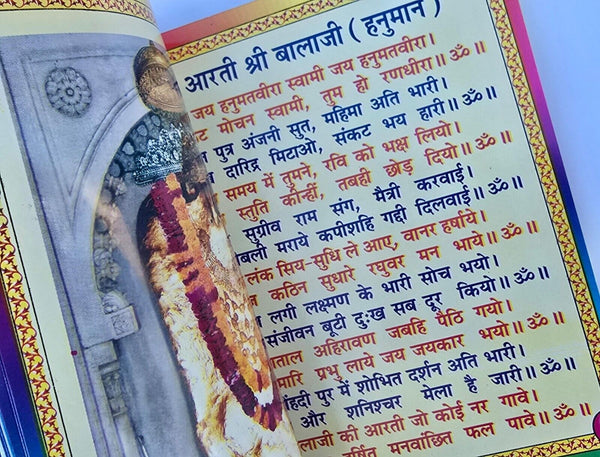 आरती श्री बालाजी ( हनुमान )
जय हनुमतवीरा स्वामी जय हनुमतवीरा।
मोचन स्वामी, तुम हो रणधीरा॥ ॐ ॥
पुत्र अंजनी सुत, महिमा अति भारी।
दारिद्र मिटाओ, संकट भय हारी॥ ॐ ॥
समय में तुमने, रवि को भक्ष लियो।
स्तुति कीन्हीं, तबही छोड़ दियो॥ ॐ ॥
सुग्रीव राम संग, मैत्री करवाई।
मराये कपीशहि गद्दी दिलवाई॥ ॐ ॥
सिय-सुधि ले आए, वानर हर्षाये।
कठिन सुधारे रघुवर मन भाये॥ ॐ ॥
लगी लक्ष्मण के भारी सोच भयो।
संजीवन बूटी दुःख सब दूर कियो॥ ॐ ॥
अहिरावण जबहि पैठि गयो।
प्रभु लाये जय जयकार भयो॥ ॐ ॥
पुर में शोभित दर्शन अति भारी।
और शनिश्चर मेला है जारी॥ ॐ ॥
की आरती जो कोई नर गावे।
मनवांछित फल पावे॥ ॐ ॥